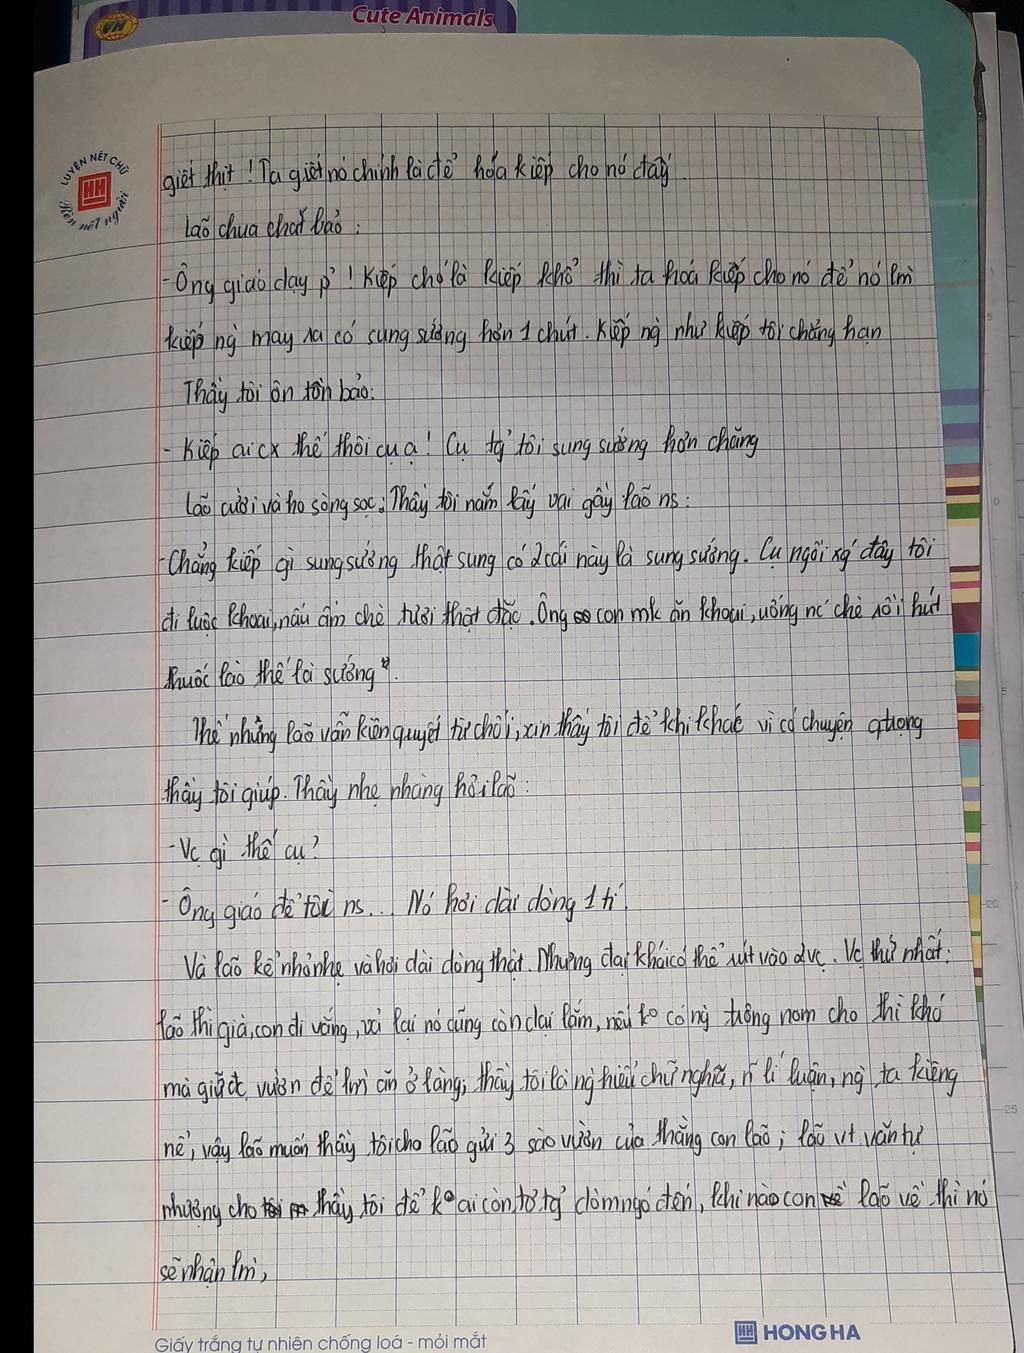 Cute Animals
VH
LUYỆN NÉT CHỮ
HH
Rèn nết người
giết thịt ! Ta giết nó chính là để hóa kiếp cho nó đấy.
Lão chua chát bảo :
- Ông giáo dạy p' ! Kiếp chó là kiếp khổ thì ta hoá kiếp cho nó để nó lm
kiếp ng` may ra có sung sướng hơn 1 chút. Kiếp ng` như kiếp tôi chẳng hạn
Thầy tôi ôn tồn bảo:
- Kiếp ai cx thế thôi cụ ạ! Cụ tg? tôi sung sướng hơn chăng
Lão cười và ho sòng sọc. Thầy tôi nắm lấy vai gầy lão ns :
- Chẳng kiếp gì sung sướng thật sung có 2 cái này là sung sướng. Cụ ngồi xg' đây tôi
đi luộc khoai, nấu ấm chè tươi thật đặc. Ông con mk ăn khoai, uống nc' chè rồi hút
thuốc lào thế là sướng".
Thế nhưng lão vẫn kiên quyết từ chối, xin thầy tôi để khi khác vì có chuyện qtrọng
thầy tôi giúp. Thầy nhẹ nhàng hỏi lão :
- Vc gì thế cụ?
- Ông giáo để tôi ns... Nó hơi dài dòng 1 tí.
Và lão kể nhỏ nhẹ và hơi dài dòng thật. Nhưng đại khái có thể rút vào 2 vc. Vc thứ nhất:
lão thì già, con đi vắng, vả lại nó cũng còn dại lắm, nếu ko có ng` trông nom cho thì khó
mà giữ đc vườn để lm ăn ở làng, thầy tôi là ng` hiểu chữ nghĩa, lí luận, ng` ta kiêng
nể, vậy lão muốn thầy tôi cho lão gửi 3 sào vườn của thằng con lão ; lão vt văn tự
nhượng cho thầy tôi để ko ai còn tơ tg? dòm ngó đến, khi nào con lão về thì nó
sẽ nhận lm,
Giấy trắng tự nhiên chống loá - mỏi mắt
HH HONG HA